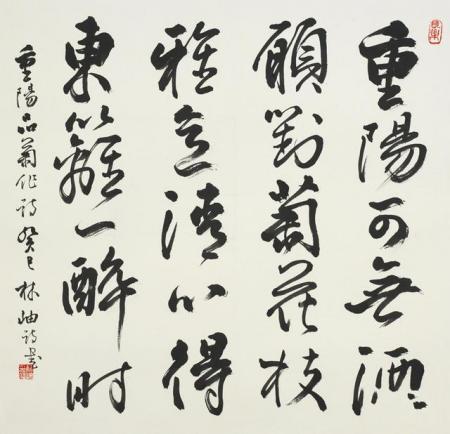 重陽可無酒
顧對菊花枝
雅意清心得
東籬一醉時
重陽品菊作詩 癸巳 林岫詩書